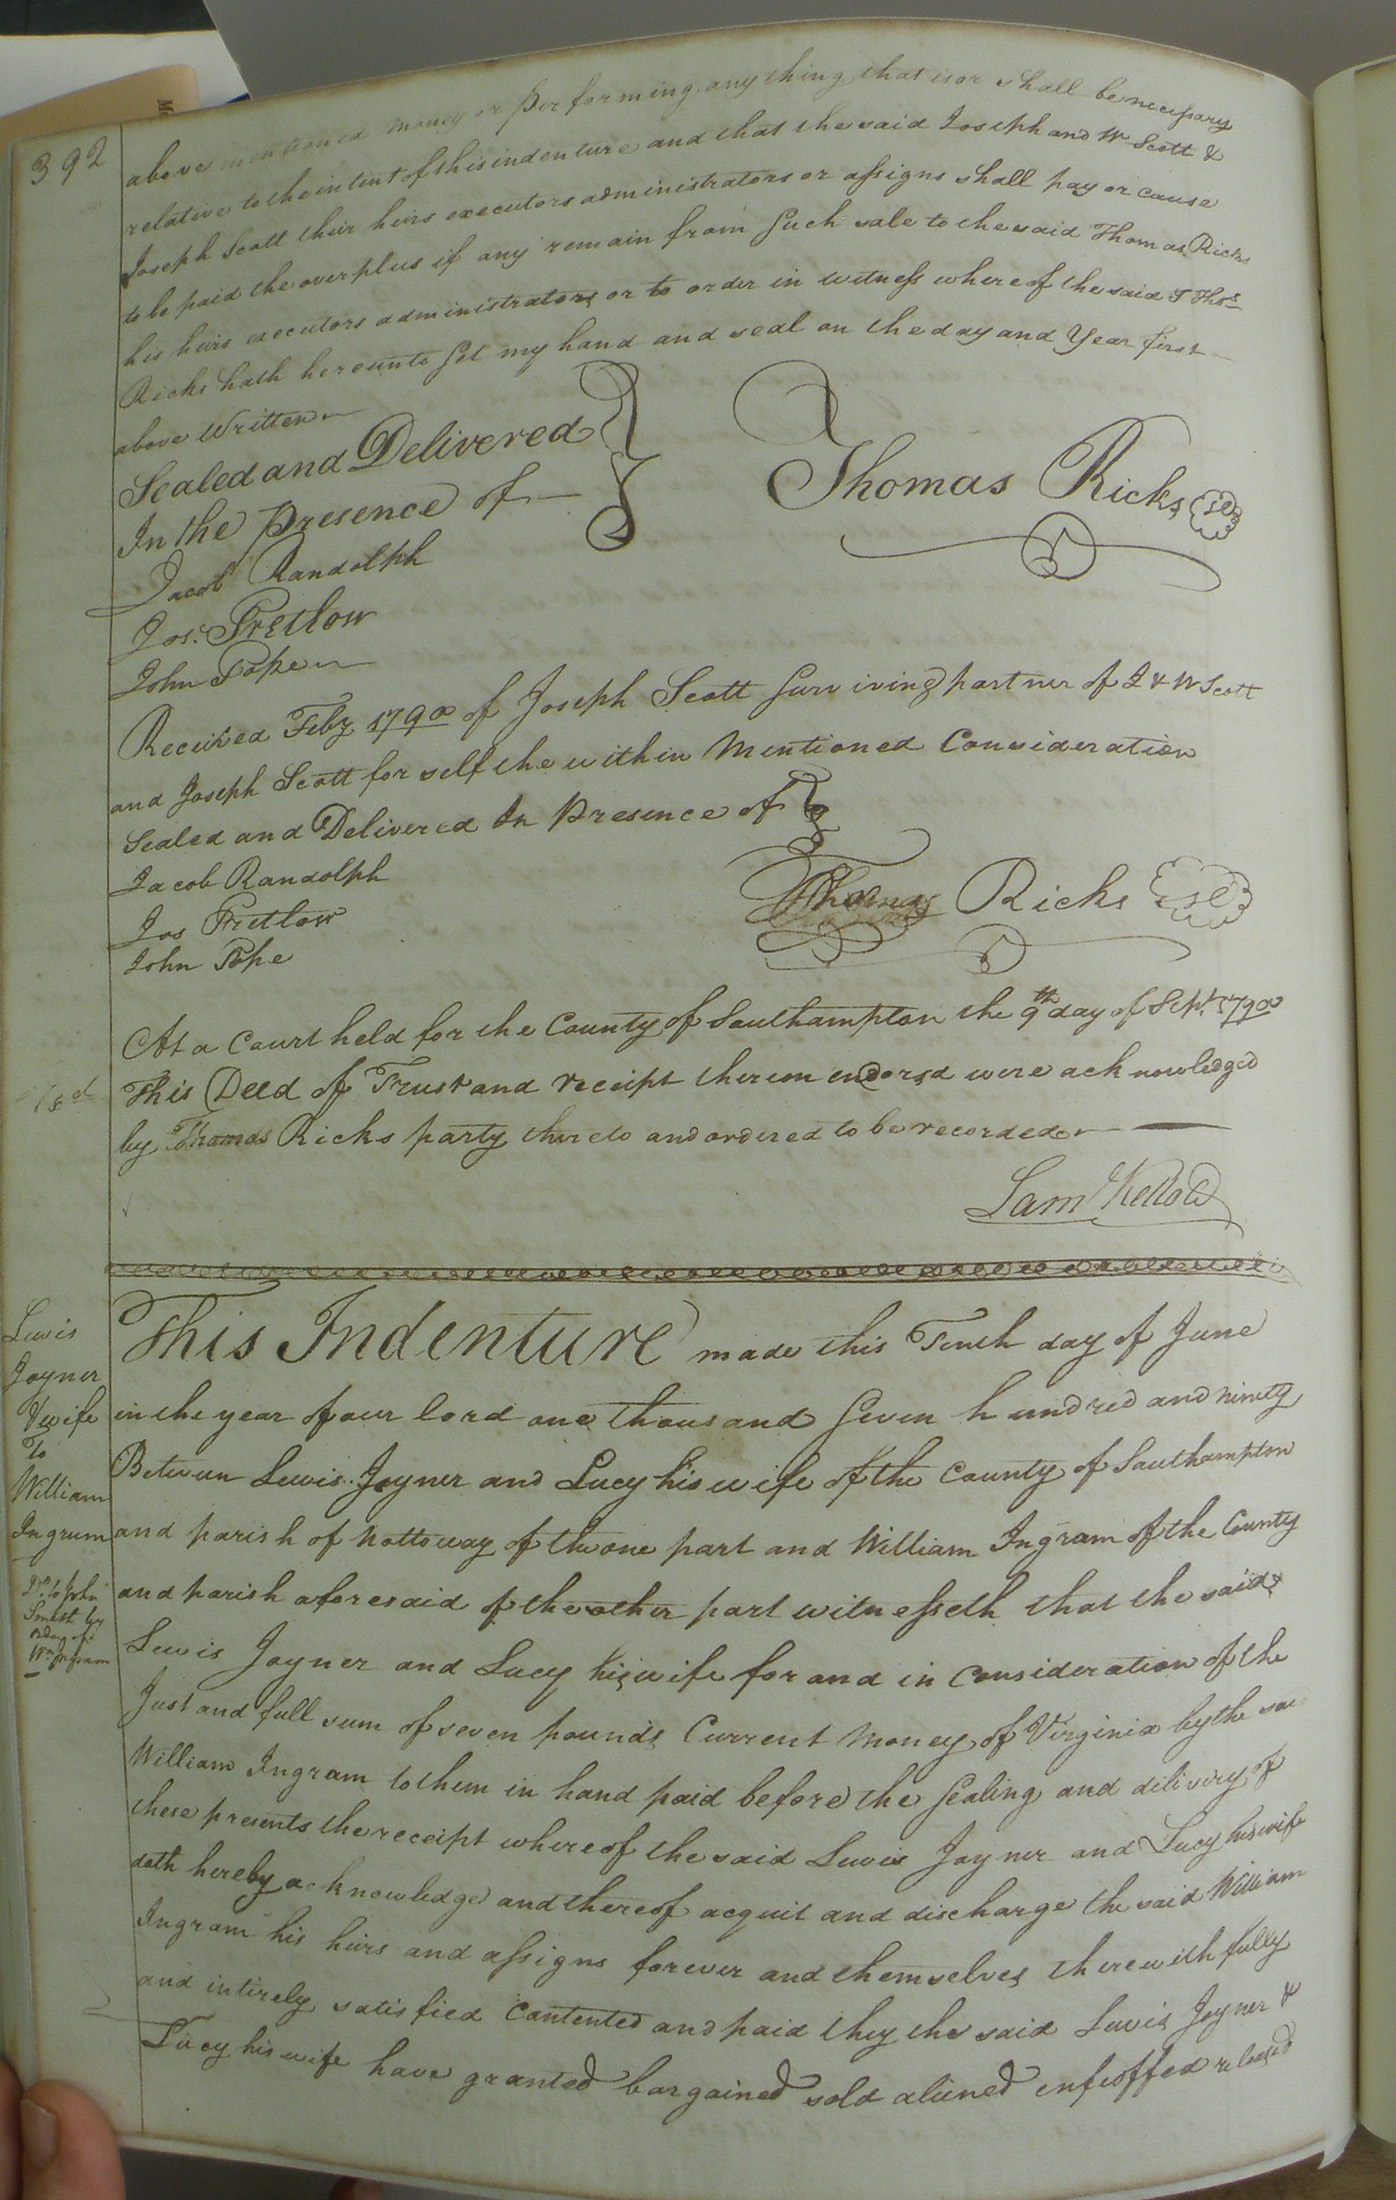 392
above mentioned money or performing any thing that is or shall be necessary
relative to the intent of this indenture and that the said Joseph and W Scott &
Joseph Scott their heirs executors administrators or assigns shall pay or cause
to be paid the overplus if any remain from such sale to the said Thomas Ricks
his heirs executors administrators or to order in witness whereof the said T Thos
Ricks hath hereunto set my hand and seal on the day and Year first
above Written
Sealed and Delivered
In the Presence of
Thomas Ricks
Jacob Randolph
Jos: Pretlow
John Pope
Received Feby 1790 of Joseph Scott surviving partner of J & W Scott
and Joseph Scott for self the within Mentioned Consideration
Sealed and Delivered In Presence of
Jacob Randolph
Thomas Ricks
Jos Pretlow
John Pope
At a Court held for the County of Southampton the 9th day of Sept. 1790
This Deed of Trust and receipt thereon endorsd were acknowledged
by Thomas Ricks party thereto and ordered to be recorded
Saml Kello
Lewis
Joyner
& wife
To
William
Ingrum
Do. to John
Smist by
order of
Wm Ingram
This Indenture made this Tenth day of June
in the year of our lord one thousand seven hundred and ninety
Between Lewis Joyner and Lucy his wife of the County of Southampton
and parish of Nottoway of the one part and William Ingram of the County
and parish aforesaid of the other part witnesseth that the said
Lewis Joyner and Lucy his wife for and in Consideration of the
Just and full sum of seven pounds Current Money of Virginia by the sai
William Ingram to them in hand paid before the sealing and dilivery of
these presents the receipt whereof the said Lewis Joyner and Lucy his wife
doth hereby acknowledge and thereof acquit and discharge the said William
Ingram his heirs and assigns forever and themselves therewith fully
and intirely satisfied Contented and paid they the said Lewis Joyner &
Lucy his wife have granted bargained sold aliened enfeoffed released